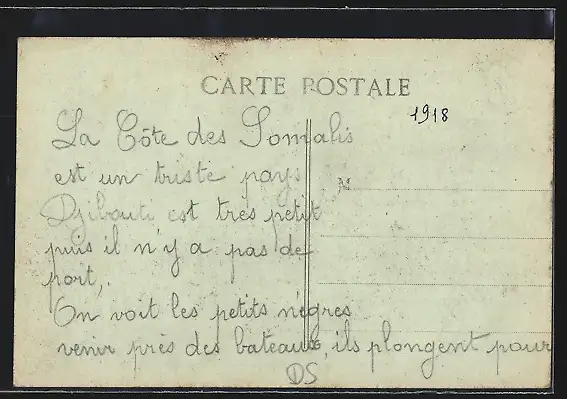 CARTE POSTALE
1918
La Côte des Somalis
est un triste pays
Djibouti est très petit
puis il n'y a pas de
port,.
On voit les petits nègres
venir près des bateaux, ils plongent pour
DS